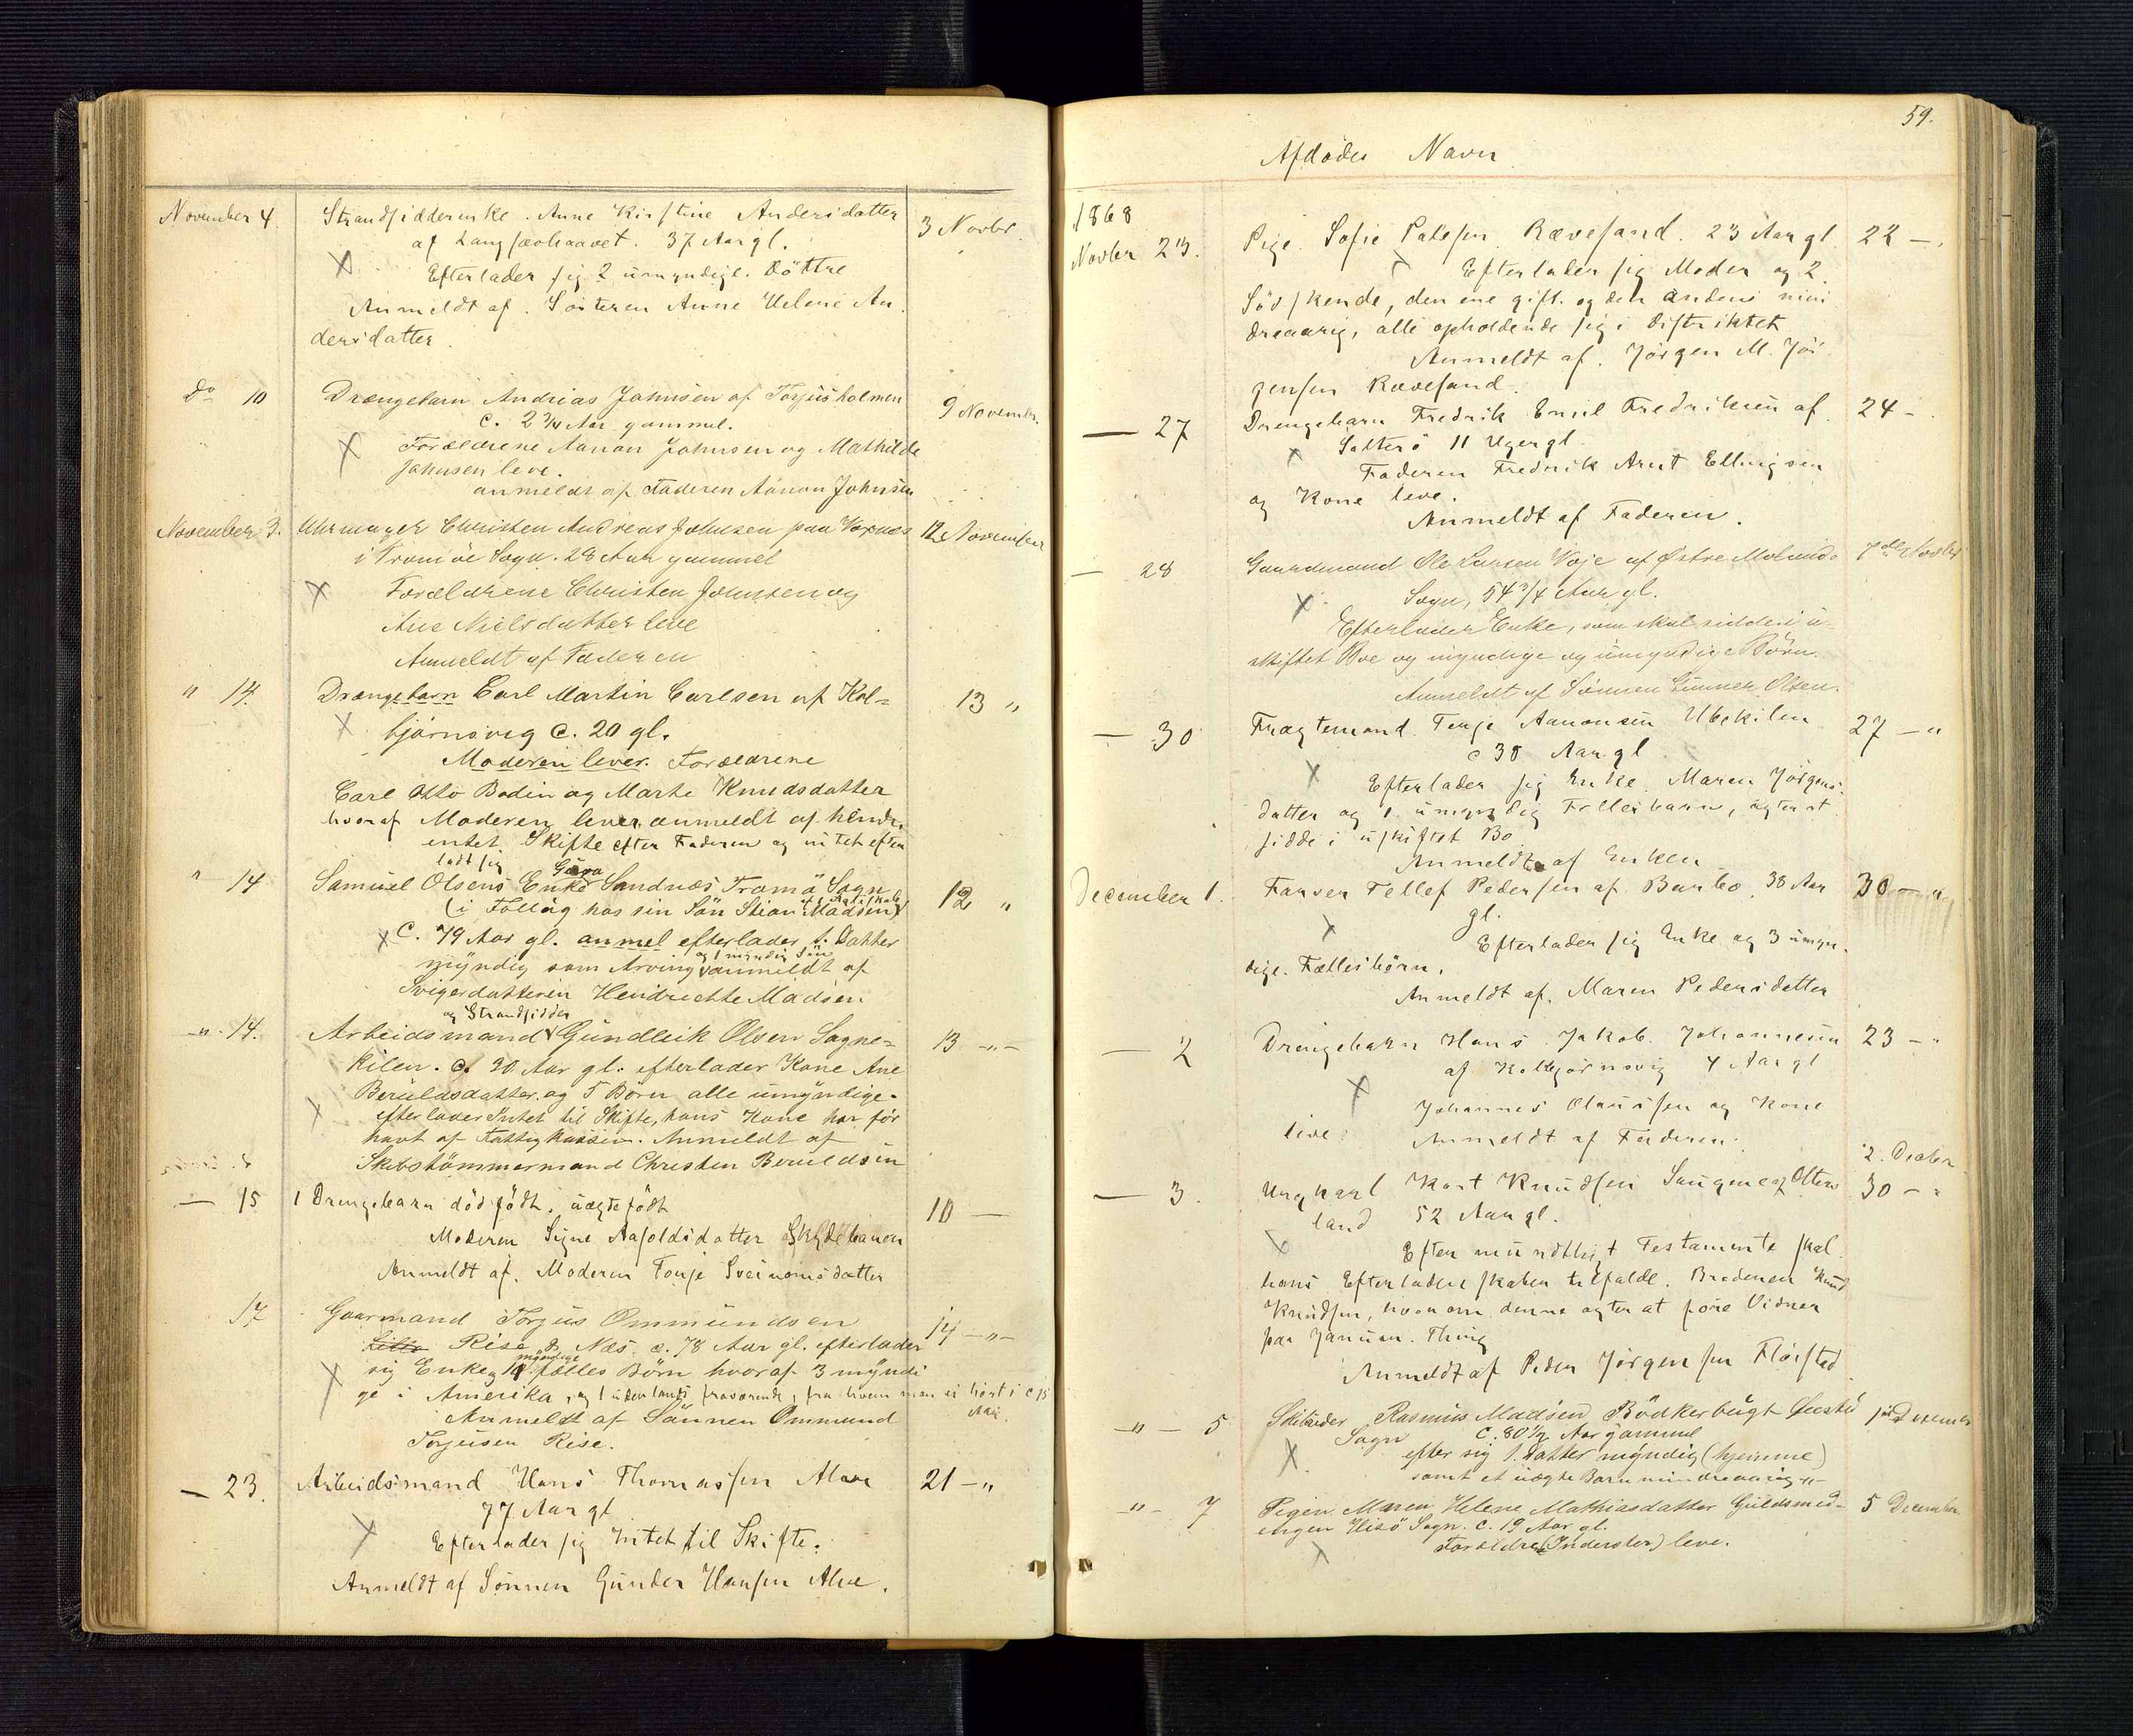 November 4. Strandsidderenke. Anne Kirstine Andersdatter 3 Novbr.
af Langsævhaavet. 37 Aar gl.
X Efterlader sig 2 umyndige Døttre
Anmeldt af Søsteren Anne Helene An
dersdatter
Do 10 Drængebarn Andreas Johnsen af Torjusholmen 9 November.
c. 2 3/4 Aar gammel.
X Forældrene Aanon Johnsen og Mathilde
Johnsen leve.
anmeldt af Faderen Aanon Johnsen
November 3. Uhrmager Christen Andreas Johnsen paa 12 November
i Tromøe Sogn. 28 Aar gammel
X Forældrene Christen Johnsen og
Ane Nielsdatter leve
Anmeldt af Faderen
" 14. Drængebarn Carl Martin Carlsen af Kol=
X bjørnsvig c. 20 gl. 13 "
Moderen lever. Forældrene
Carl Otto Bodin og Marte Knudsdatter
hvoraf Moderen lever anmeldt af hende.
intet Skifte efter Faderen og intet efter
ladt sig
" 14 Samuel Olsens Enke Sandnæs Tromø Sogn 12 "
(i Føllåg hos sin Søn Stian Madsen)
X C. 79 Aar gl. anmel efterlader 1. Datter
og 1 myndig Søn
myndig som Arving anmeldt af
Svigerdatteren Hendriette Madsen
og Strandsidder
-"- 14. Arbeidsmand Gundleik Olsen Sagne= 13 -"-
kilen. c. 30 Aar gl. efterlader Kone Ane
Beruldsdatter og 5 Børn alle umyndige.
X efterlader Intet til Skifte, hans Kone har før
havt af Fattigkassen. Anmeldt af
Skibstømmermand Christen Beruldsen
— 15 1 Drengebarn død født, uægtefødt 10 —
Moderen Signe Aasoldsdatter Skydebanen
Anmeldt af. Moderen Tonje Sveinomsdatter
17 Gaarmand Torjus Ommundsen 14 -"-
Rise & Næs. c. 78 Aar gl. efterlader
myndige
X sig Enke fælles Børn hvoraf 3 myndi
ge i Amerika, og 1 udenlands fraværende, fra hvem man ei hørt i c 15
Aar.
Anmeldt af Sønnen Ommund
Torjusen Rise.
— 23. Arbeidsmand Hans Thomassen Alve 21 -"
77 Aar gl
X Efterlader sig Intet til Skifte.
Anmeldt af Sønnen Gunder Hansen Alve.
59.
Afdødes Navn
1868
Novber 23. Pige. Sofie Palesen Rævesand. 23 Aar gl 22 -.
X Efterlader sig Moder og 2
Södskende, den ene gift og den anden min
dreaarig, alle opholdende sig i Distriktet
Anmeldt af. Jørgen M. Jør
gensen Rævesand.
— 27 Drengebarn Fredrik Emil Fredriksen af 24 -
X Salterö 11 Uger gl.
Faderen Fredrik Arnt Ellingsen
og Kone leve.
Anmeldt af Faderen.
— 28 Gaardmand Ole Larsen Voje af Østre Molands 7de Novbr
X Sogn, 54 3/4 Aar gl.
Efterlader Enke, som skal sidde i u-
skiftet Boe og myndige og umyndige Börn.
Anmeldt af Sønnen Gunner Olsen.
— 30 Fragtemand Terje Aanonsen Ubekilen 27 -"
c 38 Aar gl
X Efterlader sig Enke Maren Jörgens-
datter og 1 umyndig Fællesbarn, agter at
sidde i uskiftet Bo
Anmeldt af Enken
December 1. Farver Tellef Pedersen af Barbo 38 Aar 30 -"
gl.
X Efterlader sig Enke og 3 umyn.
dige. Fællesbørn.
Anmeldt af. Maren Pedersdatter
— 2 Drengebarn Hans Jakob. Johannesen 23 -"
af Kolbjörnsvig 4 Aar gl
X Johannes Olaussen og Kone
leve. Anmeldt af Faderen.
2. Decbr.
— 3. Ungkarl Kort Knudsen 30 -"
land 52 Aar gl.
X Efter mundtligt Testamente skal
hans Efterladenskaber tilfalde. Broderen Knud
Knudsen, hvorom denne agter at føre Vidner
paa Januar. Thing
Anmeldt af Peder Jørgensen Fløisted
-"- 5 Rasmus Madsen Bödkerbugt Øiestd 1ste December
Sogn c. 80 1/2 Aar gammel
X efter sig 1. Datter myndig (hjemme)
samt et uægte Barn mindreaarig -"-
-"- 7 Pigen Maren Helene Mathiasdatter Guldsmed= 5 December
engen Hisö Sogn. c. 19 Aar gl.
X Forældre (Inderster) leve.